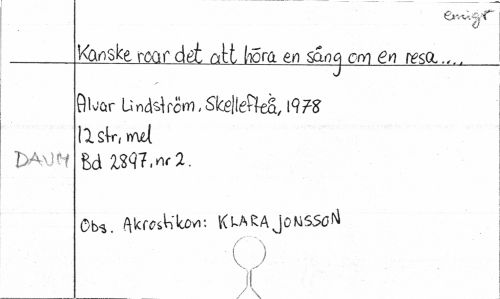 emigr
Kanske roar det att höra en sång om en resa....
Alvar Lindström, Skellefteå, 1978
12 str, mel
DAUM Bd 2897, nr 2.
Obs. Akrostikon: KLARA JONSSON